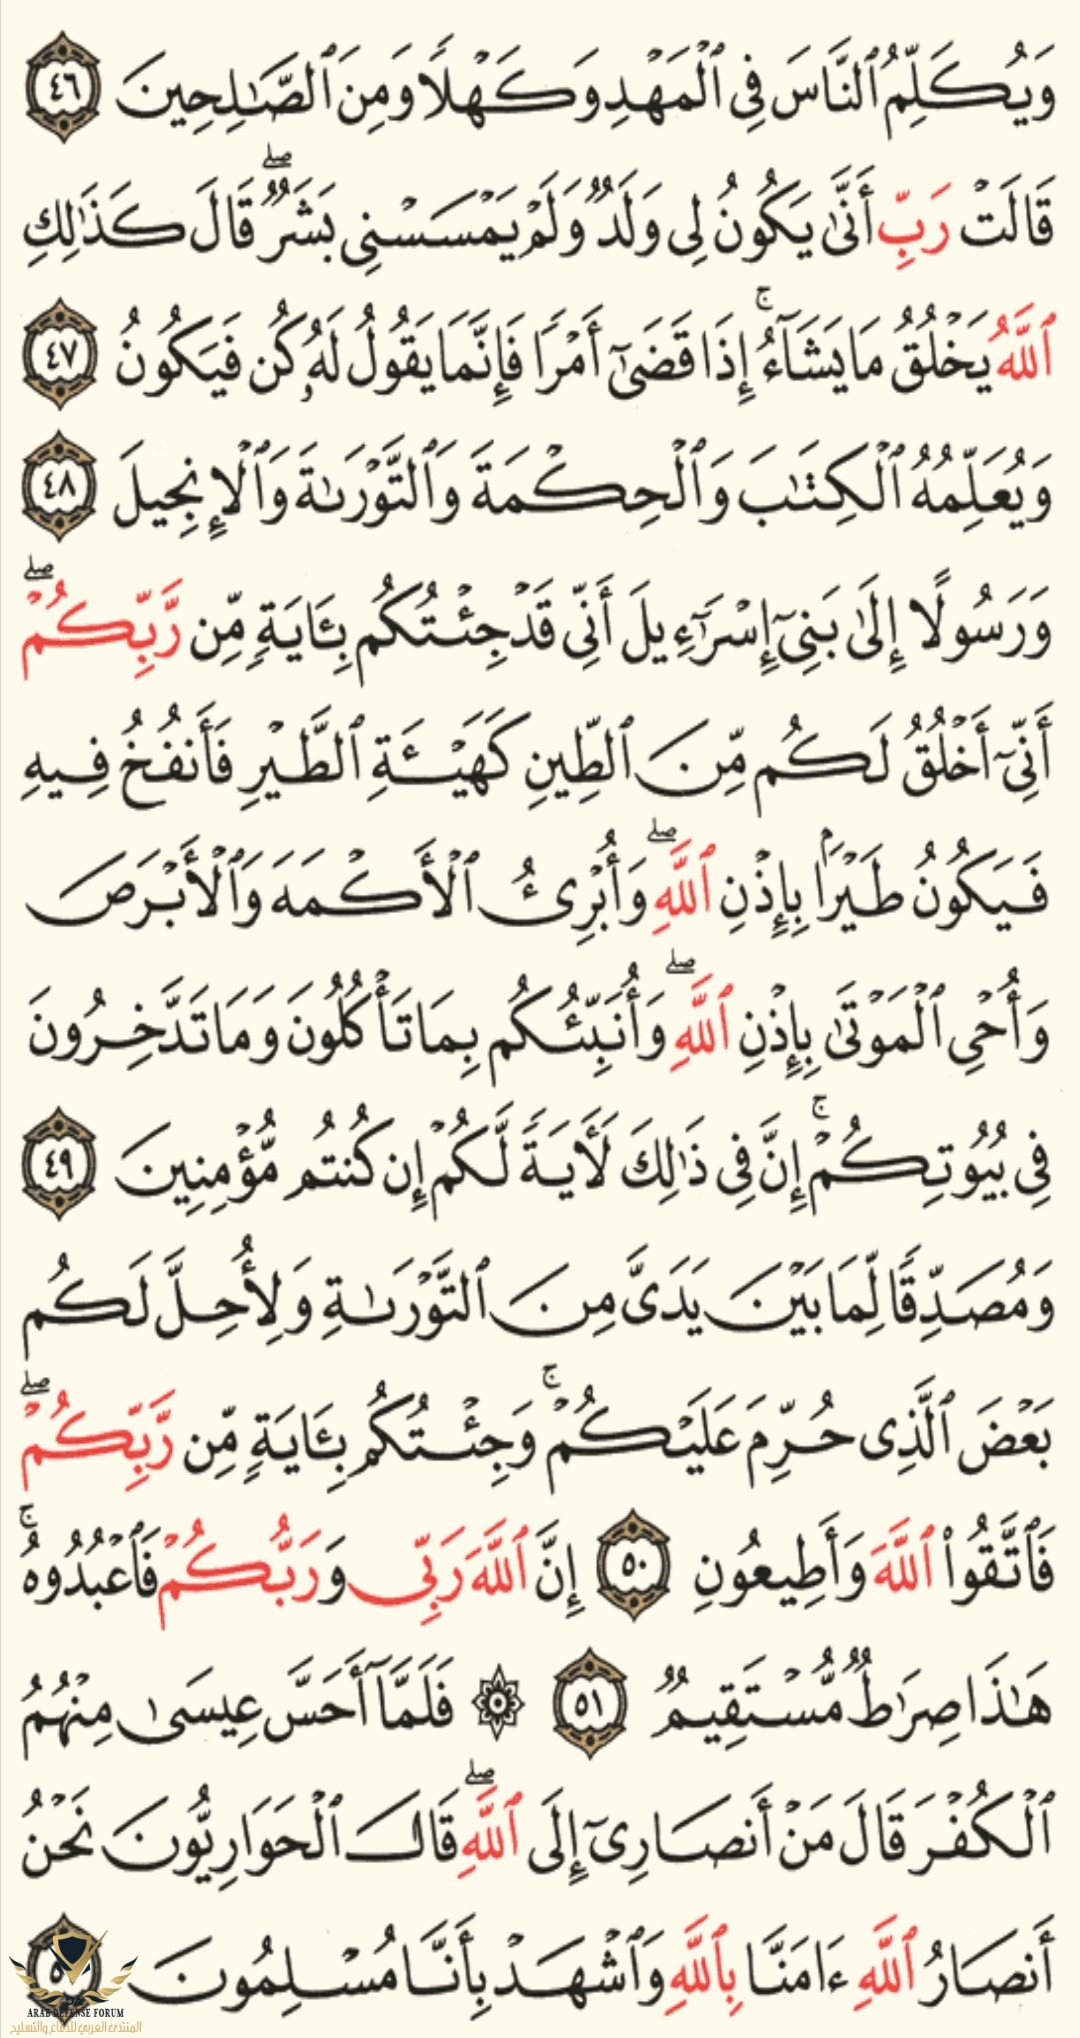 وَيُكَلِّمُ ٱلنَّاسَ فِى ٱلْمَهْدِ وَكَهْلًا وَمِنَ ٱلصَّـٰلِحِينَ ٤٦
قَالَتْ رَبِّ أَنَّىٰ يَكُونُ لِى وَلَدٌ وَلَمْ يَمْسَسْنِى بَشَرٌ ۖ قَالَ كَذَٰلِكِ
ٱللَّهُ يَخْلُقُ مَا يَشَآءُ ۚ إِذَا قَضَىٰٓ أَمْرًا فَإِنَّمَا يَقُولُ لَهُۥ كُن فَيَكُونُ ٤٧
وَيُعَلِّمُهُ ٱلْكِتَـٰبَ وَٱلْحِكْمَةَ وَٱلتَّوْرَىٰةَ وَٱلْإِنجِيلَ ٤٨
وَرَسُولًا إِلَىٰ بَنِىٓ إِسْرَٰٓءِيلَ أَنِّى قَدْ جِئْتُكُم بِـَٔايَةٍ مِّن رَّبِّكُمْ ۖ
أَنِّىٓ أَخْلُقُ لَكُم مِّنَ ٱلطِّينِ كَهَيْـَٔةِ ٱلطَّيْرِ فَأَنفُخُ فِيهِ
فَيَكُونُ طَيْرًۢا بِإِذْنِ ٱللَّهِ ۖ وَأُبْرِئُ ٱلْأَكْمَهَ وَٱلْأَبْرَصَ
وَأُحْىِ ٱلْمَوْتَىٰ بِإِذْنِ ٱللَّهِ ۖ وَأُنَبِّئُكُم بِمَا تَأْكُلُونَ وَمَا تَدَّخِرُونَ
فِى بُيُوتِكُمْ ۚ إِنَّ فِى ذَٰلِكَ لَـَٔايَةً لَّكُمْ إِن كُنتُم مُّؤْمِنِينَ ٤٩
وَمُصَدِّقًا لِّمَا بَيْنَ يَدَىَّ مِنَ ٱلتَّوْرَىٰةِ وَلِأُحِلَّ لَكُم
بَعْضَ ٱلَّذِى حُرِّمَ عَلَيْكُمْ ۚ وَجِئْتُكُم بِـَٔايَةٍ مِّن رَّبِّكُمْ ۖ
فَٱتَّقُوا۟ ٱللَّهَ وَأَطِيعُونِ ٥٠ إِنَّ ٱللَّهَ رَبِّى وَرَبُّكُمْ فَٱعْبُدُوهُ ۚ
هَـٰذَا صِرَٰطٌ مُّسْتَقِيمٌ ٥١ ۞ فَلَمَّآ أَحَسَّ عِيسَىٰ مِنْهُمُ
ٱلْكُفْرَ قَالَ مَنْ أَنصَارِىٓ إِلَى ٱللَّهِ ۖ قَالَ ٱلْحَوَارِيُّونَ نَحْنُ
أَنصَارُ ٱللَّهِ ءَامَنَّا بِٱللَّهِ وَٱشْهَدْ بِأَنَّا مُسْلِمُونَ
ARAB DEFENSE FORUM
المنتدى العربي للدفاع والتسليح